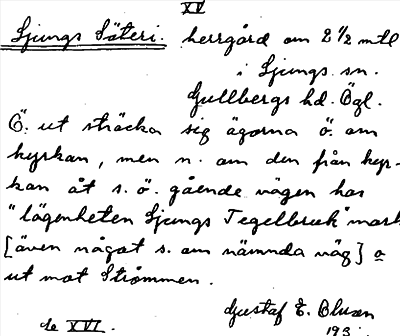 XV
Ljungs Säteri. herrgård om 2 1/2 mtl
i Ljungs sn.
Gullbergs hd. Ögl.
Ö. ut sträcka sig ägorna ö. om
kyrkan, men n. om den från kyr-
kan åt s. ö. gående vägen has
"lägenheten Ljungs Tegelbruk" mark
[även något s. om nämnda väg] o
ut mot Strömmen.
Gustaf E. Blum
de XVI. 193